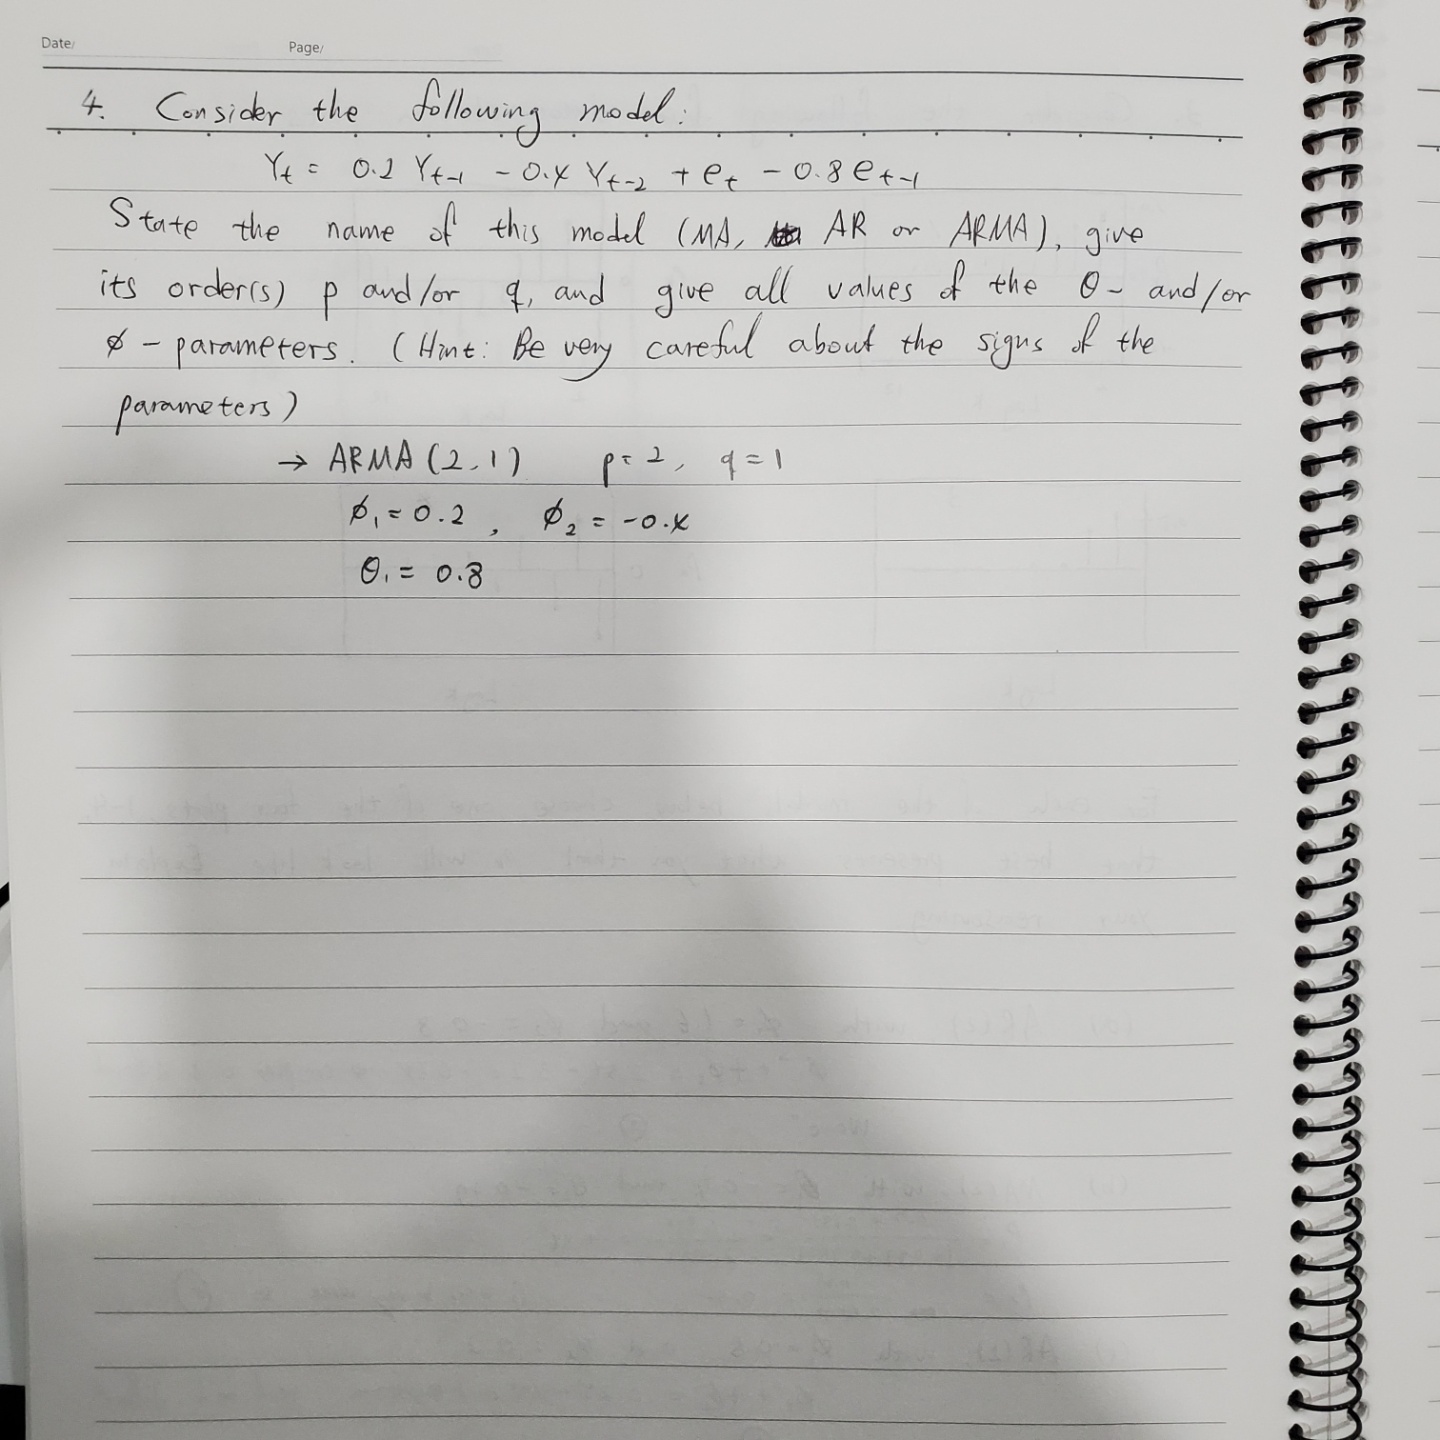 Date/ Page/
4. Consider the following model:
Yt = 0.2 Yt-1 - 0.4 Yt-2 + et - 0.8 et-1
State the name of this model (MA, AR or ARMA), give
its order(s) p and/or q, and give all values of the θ- and/or
ϕ-parameters. (Hint: Be very careful about the signs of the
parameters)
→ ARMA (2,1) p=2, q=1
ϕ1 = 0.2, ϕ2 = -0.4
θ1 = 0.8